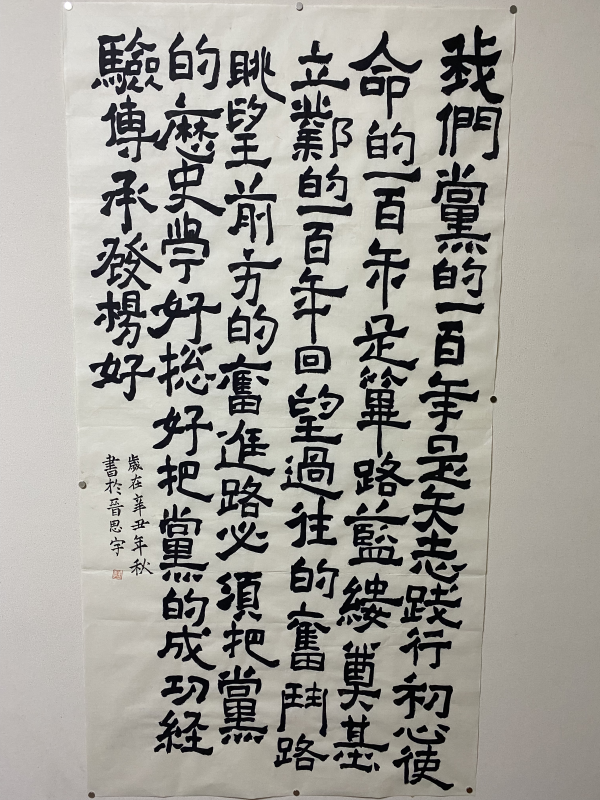 我們黨的一百年是矢志踐行初心使
命的一百年是篳路藍縷奠基
立鄴的一百年回望過往的奮鬥路
眺望前方的奮進路必須把黨
的歷史學好捴好把黨的成功経
驗傳承發楊好
歲在辛丑年秋
書於晉思宇